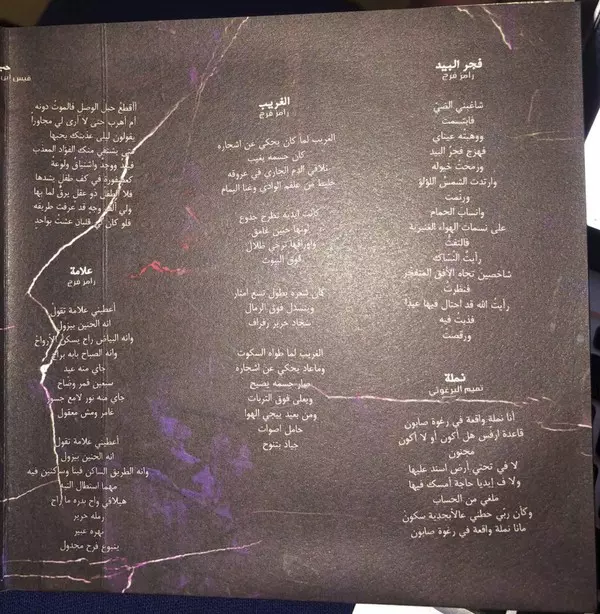 فجر البيد
رامز فرح
شاغبني الضيّ
فابتسمت
ووهبته عيناي
فهزج فجرُ البيد
ورمحتْ خيوله
وارتدت الشمسُ اللؤلؤ
ورنمت
وانساب الحمام
على نسمات الهواء القنبرية
فالتفتُّ
رأيتُ النُسّاكه
شاخصين تجاه الأفق المتفجر
فنظرتُ
رأيتُ الله قد احتال فيها عيداً
فذبت فيه
ورقصت
نملة
تميم البرغوثي
أنا نملة واقعة في رغوة صابون
قاعدة ارفس هل أكون أو لا أكون
مجنون
لا في تحتي أرض أسند عليها
ولا ف إيديا حاجة أمسك فيها
ملغي من الحساب
وكأن ربّي حطني عالأبجدية سكون
مانا نملة واقعة في رغوة صابون
الغريب
رامز فرح
الغريب لما كان يحكي عن اشجاره
كان جسمه يغيب
تلاقي الدم الجاري في عروقه
خليط من علقم الوادي وغنا اليمام
كانت ايديه تطرح جذوع
لونها حنين غامق
واوراقها ترخي ظلال
فوق البيوت
كان شعره يطول تسع امتار
ويتسدل فوق الرمال
سجاد حرير رفراف
الغريب لما طواه السكوت
وماعاد يحكي عن اشجاره
صار جسمه يصيح
ويعلى فوق التربات
ومن بعيد ييجي الهوا
حامل اصوات
جياد بتنوح
قيس ابن
أأقطعُ حبل الوصل فالموتُ دونه
أم أهرب حتى لا أرى لي مجاوراً
يقولون ليلى عذبتك بحبها
متك الفؤاد المعذب
ووجدٌ واشتياقٌ ولوعةٌ
كعصفورة في كف طفل يشدها
فلا الطفل ذو عقل يرقُّ لما بها
ولي ألف وجه قد عرفت طريقه
فلو كان لي قلبان عشتُ بواحدٍ
علامة
رامز فرح
أعطيني علامة تقولْ
انه الحنين بيزول
وانه البياض راح يسكن الأرواحْ
وانه الصباح بابه براح
جاي منه عيد
سبعين قمر وضاح
جاي منه نور لامع
عامر ومش معقول
أعطيني علامة تقولْ
انه الحنين بيزول
وانه الطريق الساكن فينا وساكنين فيه
مهما استطال التيه
هيلاقي واح بدره ما راح
رمله حرير
نهره عبير
ينبوع فرح مجدول